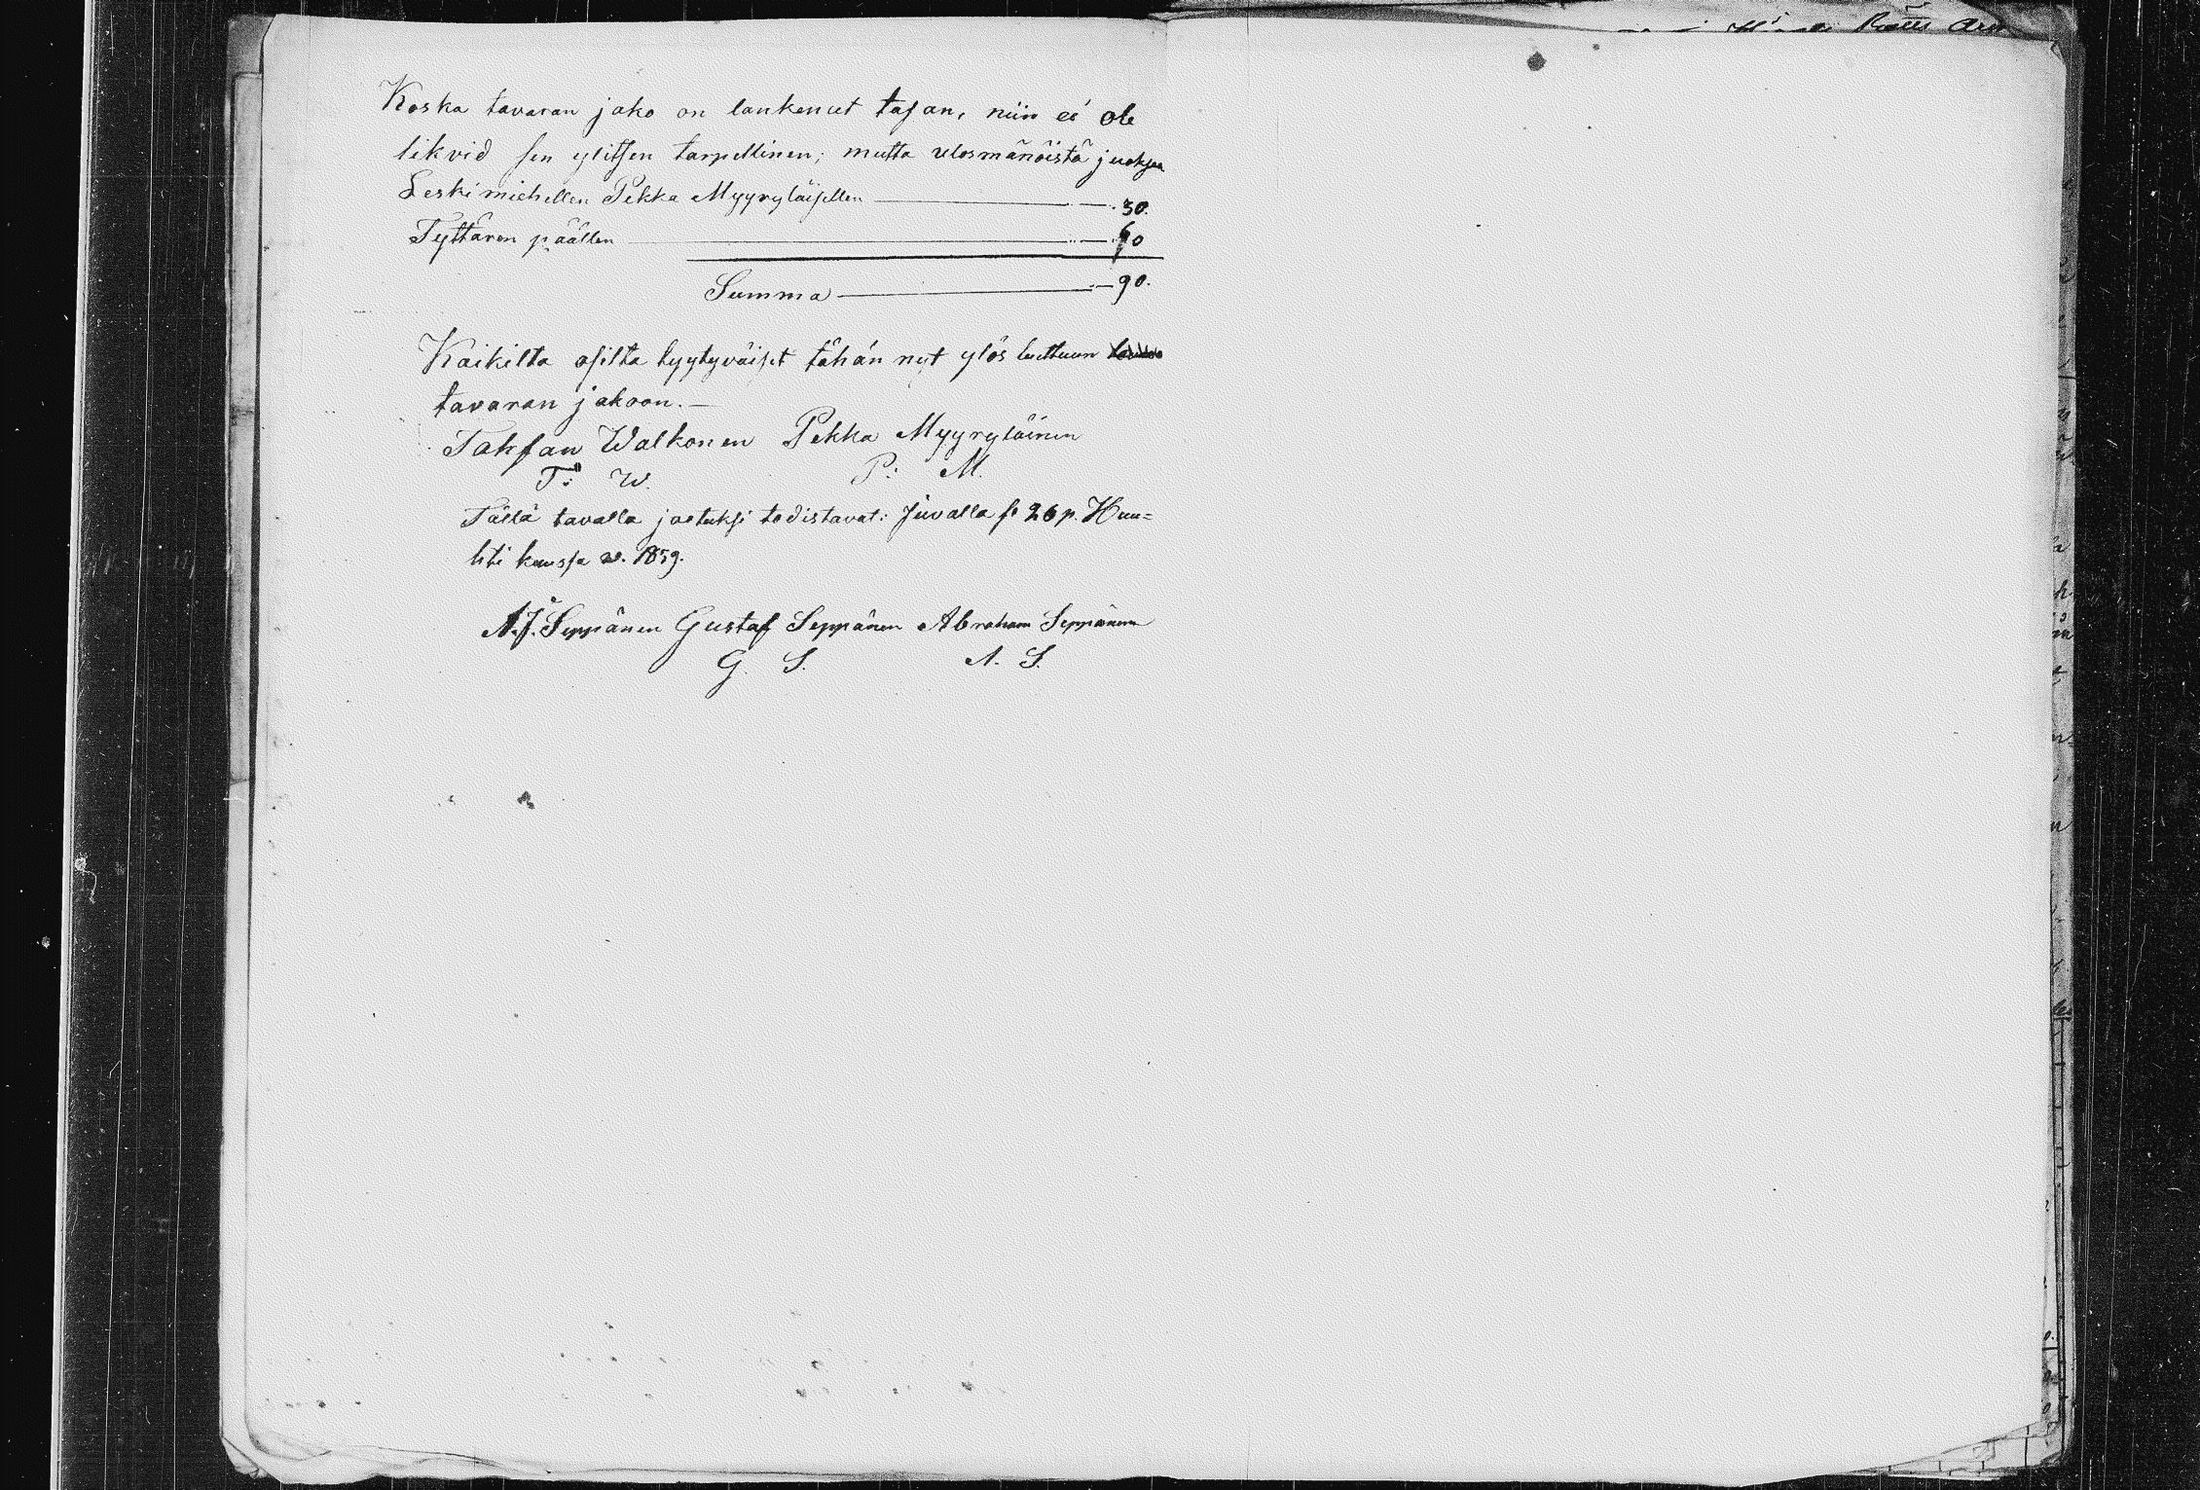 Koska tavaran jako on lankenut tasan, niin ei ole
likvid sen ylitsen tarpellinen; mutta ulosmänöistä juoksee
Leskimiehellen Pekka Myyryläisellen — 30.
Tyttären päällen — 60
Summa — 90.
Kaikilta osilta tyytyväiset tähän nyt ylös luettuun
tavaran jakoon.—
Tahfan Walkonen Pekka Myyryläinen
T: W. P: M.
Tällä tavalla jaetuksi todistavat: Juvalla s. 26 p. Huu=
hti kuussa w. 1859.
A.J. Seppänen Gustaf Seppänen Abraham Seppänen
G. S. A. S.